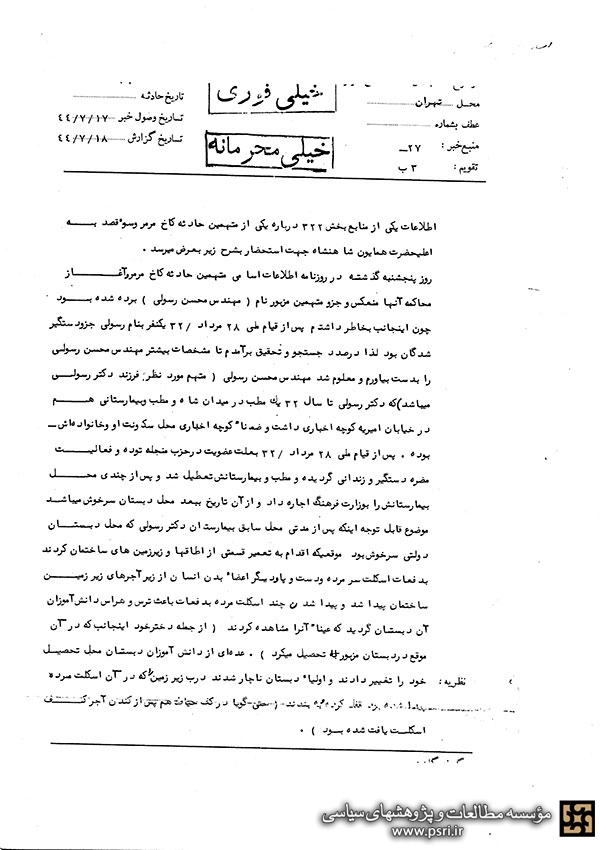 خیلی فوری
خیلی محرمانه
محل : تهران
عطف بشماره
منبع خبر : ۲۷ــ
تقویم : ۳ ب
تاریخ حادثه
تاریخ وصول خبر ۴۴/۷/۱۷
تاریخ گزارش ۴۴/۷/۱۸
اطلاعات یکی از منابع بخش ۳۲۲ درباره یکی از متهمین حادثه کاخ مرمر وسوء قصد بــه
اعلیحضرت همایون شاهنشاه جهت استحضار بشرح زیر بعرض میرسد .
روز پنجشنبه گذشته در روزنامه اطلاعات اسامی متهمین حادثه کاخ مرمر وآغــاز
محاکمه آنها منعکس و جزو متهمین مزبور نام ( مهندس محسن رسولی ) برده شده بــود
چون اینجانب بخاطر داشتم پس از قیام ملی ۲۸ مرداد /۳۲ یکنفر بنام رسولی جزو دستگیر
شدگان بود لذا درصدد جستجو و تحقیق برآمدم تا مشخصات بیشتر مهندس محسن رسولی
را بدست بیاورم و معلوم شد مهندس محسن رسولی ( متهم مورد نظر فرزند دکتر رسولــی
میباشد) که دکتر رسولی تا سال ۳۲ یك مطب در میدان شاه و مطب وبیمارستانی هــم
در خیابان امیریه کوچه اخباری داشت و ضمناً کوچه اخباری محل سکونت او وخانواده‌اش ــ
بوده . پس از قیام ملی ۲۸ مرداد /۳۲ بعلت عضویت در حزب منحله توده و فعالیــت
مضره دستگیر و زندانی گردیده و مطب و بیمارستانش تعطیل شد و پس از چندی محــل
بیمارستانش را بوزارت فرهنگ اجاره داد و از آن تاریخ ببعد محل دبستان سرخوش میباشد
موضوع قابل توجه اینکه پس از مدتی محل سابق بیمارستان دکتر رسولی که محل دبــستان
دولتی سرخوش بود موقعیکه اقدام به تعمیر قسمتی از اطاقها و زیرزمین های ساختمان کردند
بدفعات اسکلت سر مرده ودست و پاودیگر اعضاء بدن انسان از زیر آجرهای زیر زمیــن
ساختمان پیدا شد و پیدا شدن چند اسکلت مرده بدفعات باعث ترس و هراس دانش‌آموزان
آن دبستان گردید که عیناً آنرا مشاهده کردند ( از جمله دختر خود اینجانب که در آن
موقع در دبستان مزبور تحصیل میکرد ) . عده‌ای از دانش آموزان دبستان محل تحصیــل
نظریه : خود را تغییر دادند و اولیاء دبستان ناچار شدند درب زیر زمین را که در آن اسکلت مرده
پیدا شده بود قفل کرده به بندند ( حتی گویا در کف حیاط هم پس از کندن آجر کــف
اسکلت یافت شده بــود ) .
مؤسسه مطالعات و پژوهشهای سیاسی
www.psri.ir